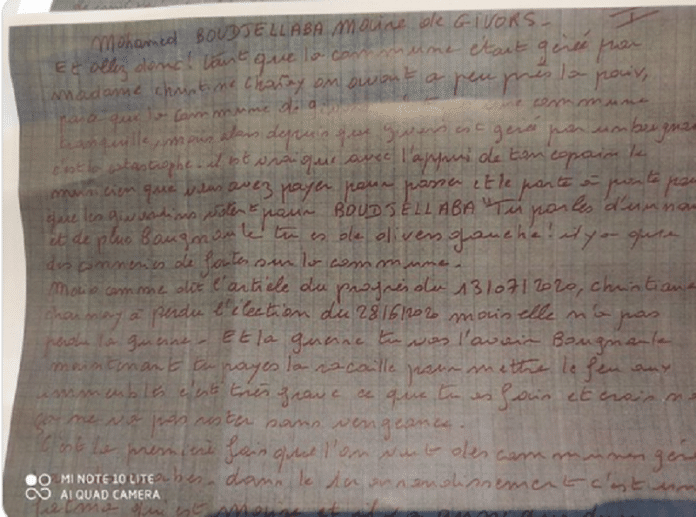 I
Mohamed BOUDJELLABA Maire de GIVORS_
Et allez donc! Tant que la commune était gérée par
madame christine charnay on avait a peu près la paix,
para que la commune de une commune
tranquille, mais alors depuis que givors est gérée par un bougnou
c'est la catastrophe. il est vrai que avec l'appui de ton copain le
musicien que vous avez payer pour passer et le porte à porte pour
que les givordins votent pour BOUDJELLABA Tu parles d'un nom
et de plus Bougnoule tu es de divers gauche! il y a que
des conneries de faites sur la commune.
Mais comme dit l'article du progrès du 13/07/2020, christiane
charnay à perdu l'élection du 28/6/2020 mais elle n'a pas
perdu la guerre. Et la guerre tu vas l'avoir Bougnoule
maintenant tu payes la racaille pour mettre le feu aux
immeubles c'est très grave ce que tu as fais et crois moi
ça ne va pas rester sans vengeance.
C'est la première fois que l'on voit des communes géré
dans le 1er arrondissement c'est un
est Maire et il y a aussi que dans
MI NOTE 10 LITE
AI QUAD CAMERA